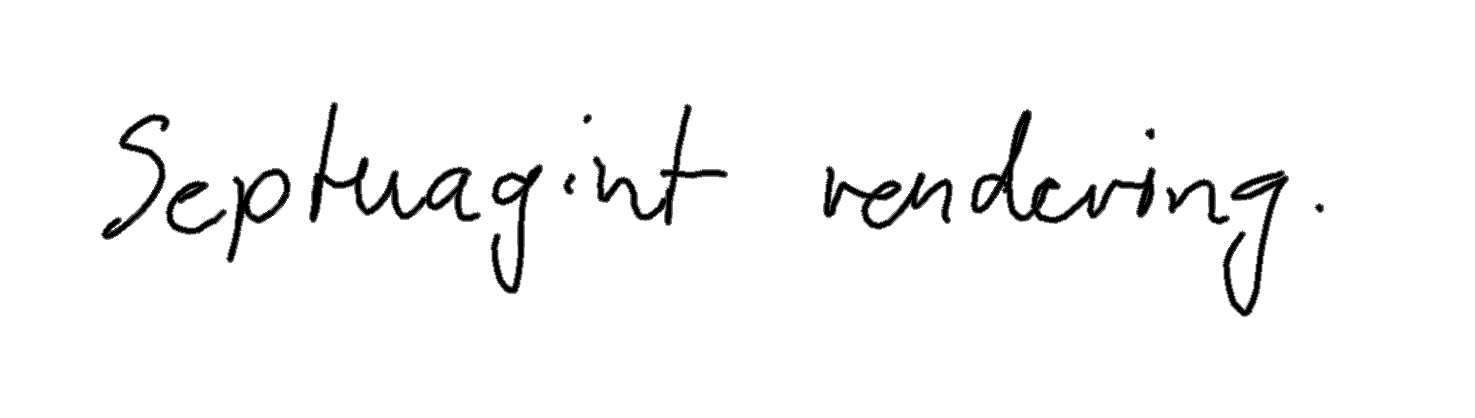 Septuagint rendering.